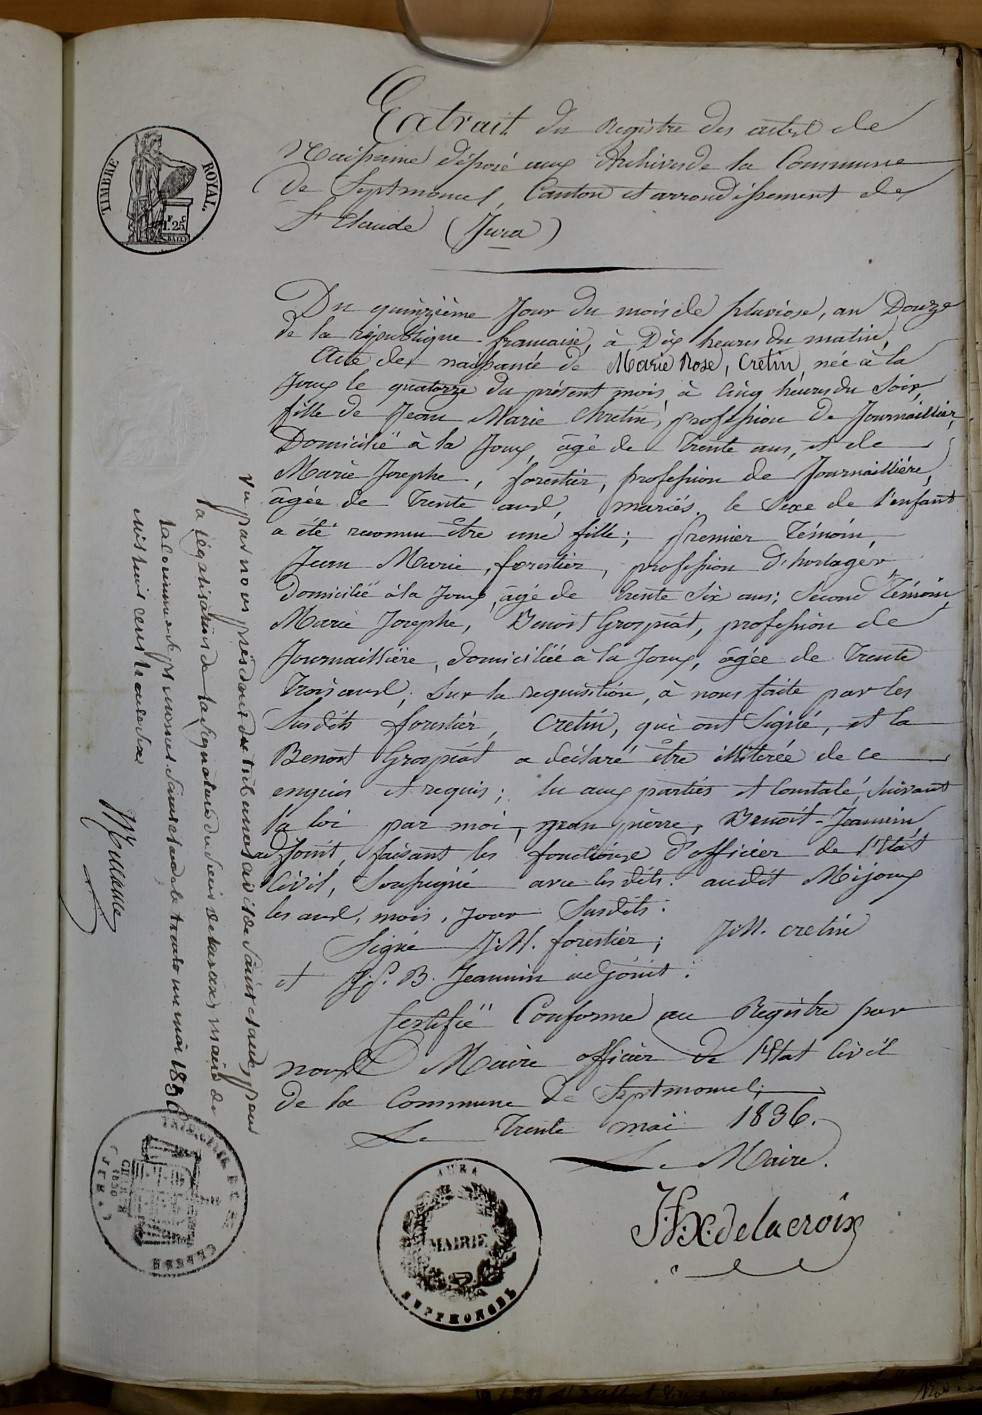 TIMBRE ROYAL
1F. 25C.
Extrait du Registre des actes de
Naissance déposé aux Archives de la Commune
De Septmoncel, Canton et arrondissement de
St Claude (Jura)
Du quinzième Jour du mois de pluviose, an Douze
de la république francaise, à Dix heures du matin,
Acte de naissance de Marie Rose, Cretin, née à la
Joux le quatorze du présent mois à cinq heures du soir,
fille de Jean Marie Chretin, profession de Journaillier,
Domicilié à la Joux, âgé de trente ans, et de
Marie Josephe, forestier, profession de Journaillière,
âgée de trente ans, mariés, le sexe de l'enfant
a été reconnu être une fille; premier témoin,
Jean Marie, forestier, profession d'horloger
domicilié à la Joux, âgé de trente six ans; second témoin
Marie Josephe, Benoit Grospiat, profession de
Journaillière, domiciliée à la Joux, âgée de trente
trois ans, sur la requisition, à nous faite par les
susdits forestier, Cretin, qui ont signé, et la
Benoit Grospiat a déclaré être illiterée de ce
enquis et requis; lu aux parties et constaté, suivant
la loi par moi, jean pierre, Benoit-Jeannin
adjoint, faisant les fonctions d'officier de l'Etat
civil, soussigné avec les dits. audit Mijoux
les and, mois, jour susdits.
Signé J.M. forestier; J.M. cretin
et J.P. B. Jeannin adjoint.
Certifié Conforme au Registre par
nous Maire officier de l'Etat civil
de la Commune de Septmoncel;
Le trente mai 1836.
Le Maire.
J.F.X. delacroix
Vu par nous président du tribunal civil de Saint Claude, pour
la légalisation de la signature du Sieur delacroix maire de
la commune de septmoncel Saint Claude le trente un mai 1836
mil huit cent trente six
JURA
MAIRIE
SEPTMONCEL